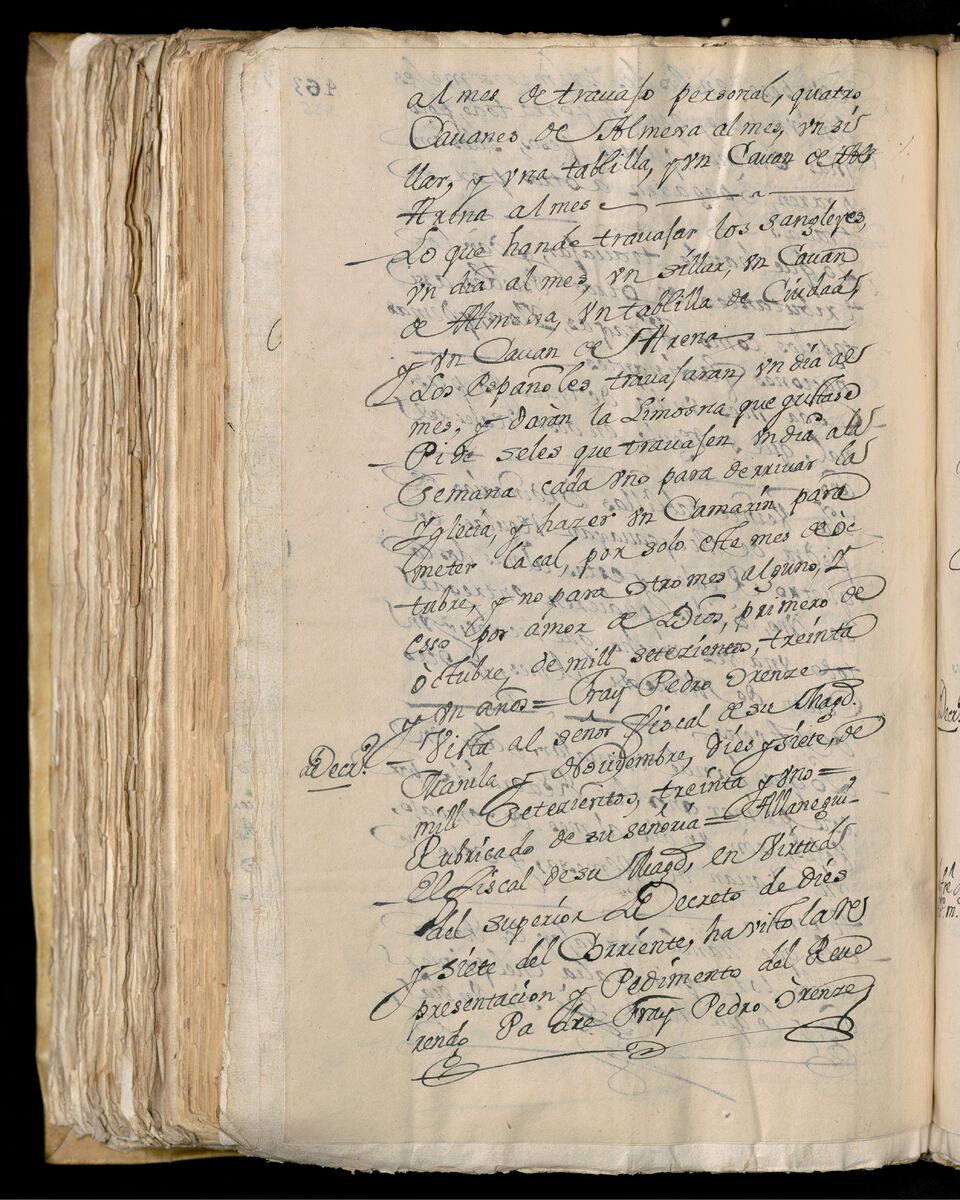 al mes de travajo personal, quatro
Cavanes de Almeja al mes, vn si
llar, y vna tablilla, y vn Cavan de
Arena al mes
Lo que hande travajar los sangleyes,
vn dia al mes, vn sillar, vn Cavan
de Almeja, vn tablilla de Ciudad,
y vn Cavan de Arena
Los Españoles travajaran, vn dia al
mes, y daràn la Limosna que gustase
Pide seles que travajen vn dia ala
Semana cada vno para derrivar la
Yglecia, y hazer vn Camarin para
meter la cal, por solo este mes de òc
tubre, y no para otro mes alguno, Y
esso por amor de Dios, primero de
òctubre, de mill setezientos, treinta
y vn años = Fray Pedro Orenze
Decr.º
Vista al señor Fiscal de su Magd.
Manila y Noviembre, dies y siete, de
mill setezientos, treinta y vno =
Rubricado de su señoria = Allanegui
El Fiscal de su Magd, en Virtud
del superior Decreto de dies
y siete del Corriente, ha visto la re
presentacion y Pedimento del Reve
rendo Padre Fray Pedro Orenze